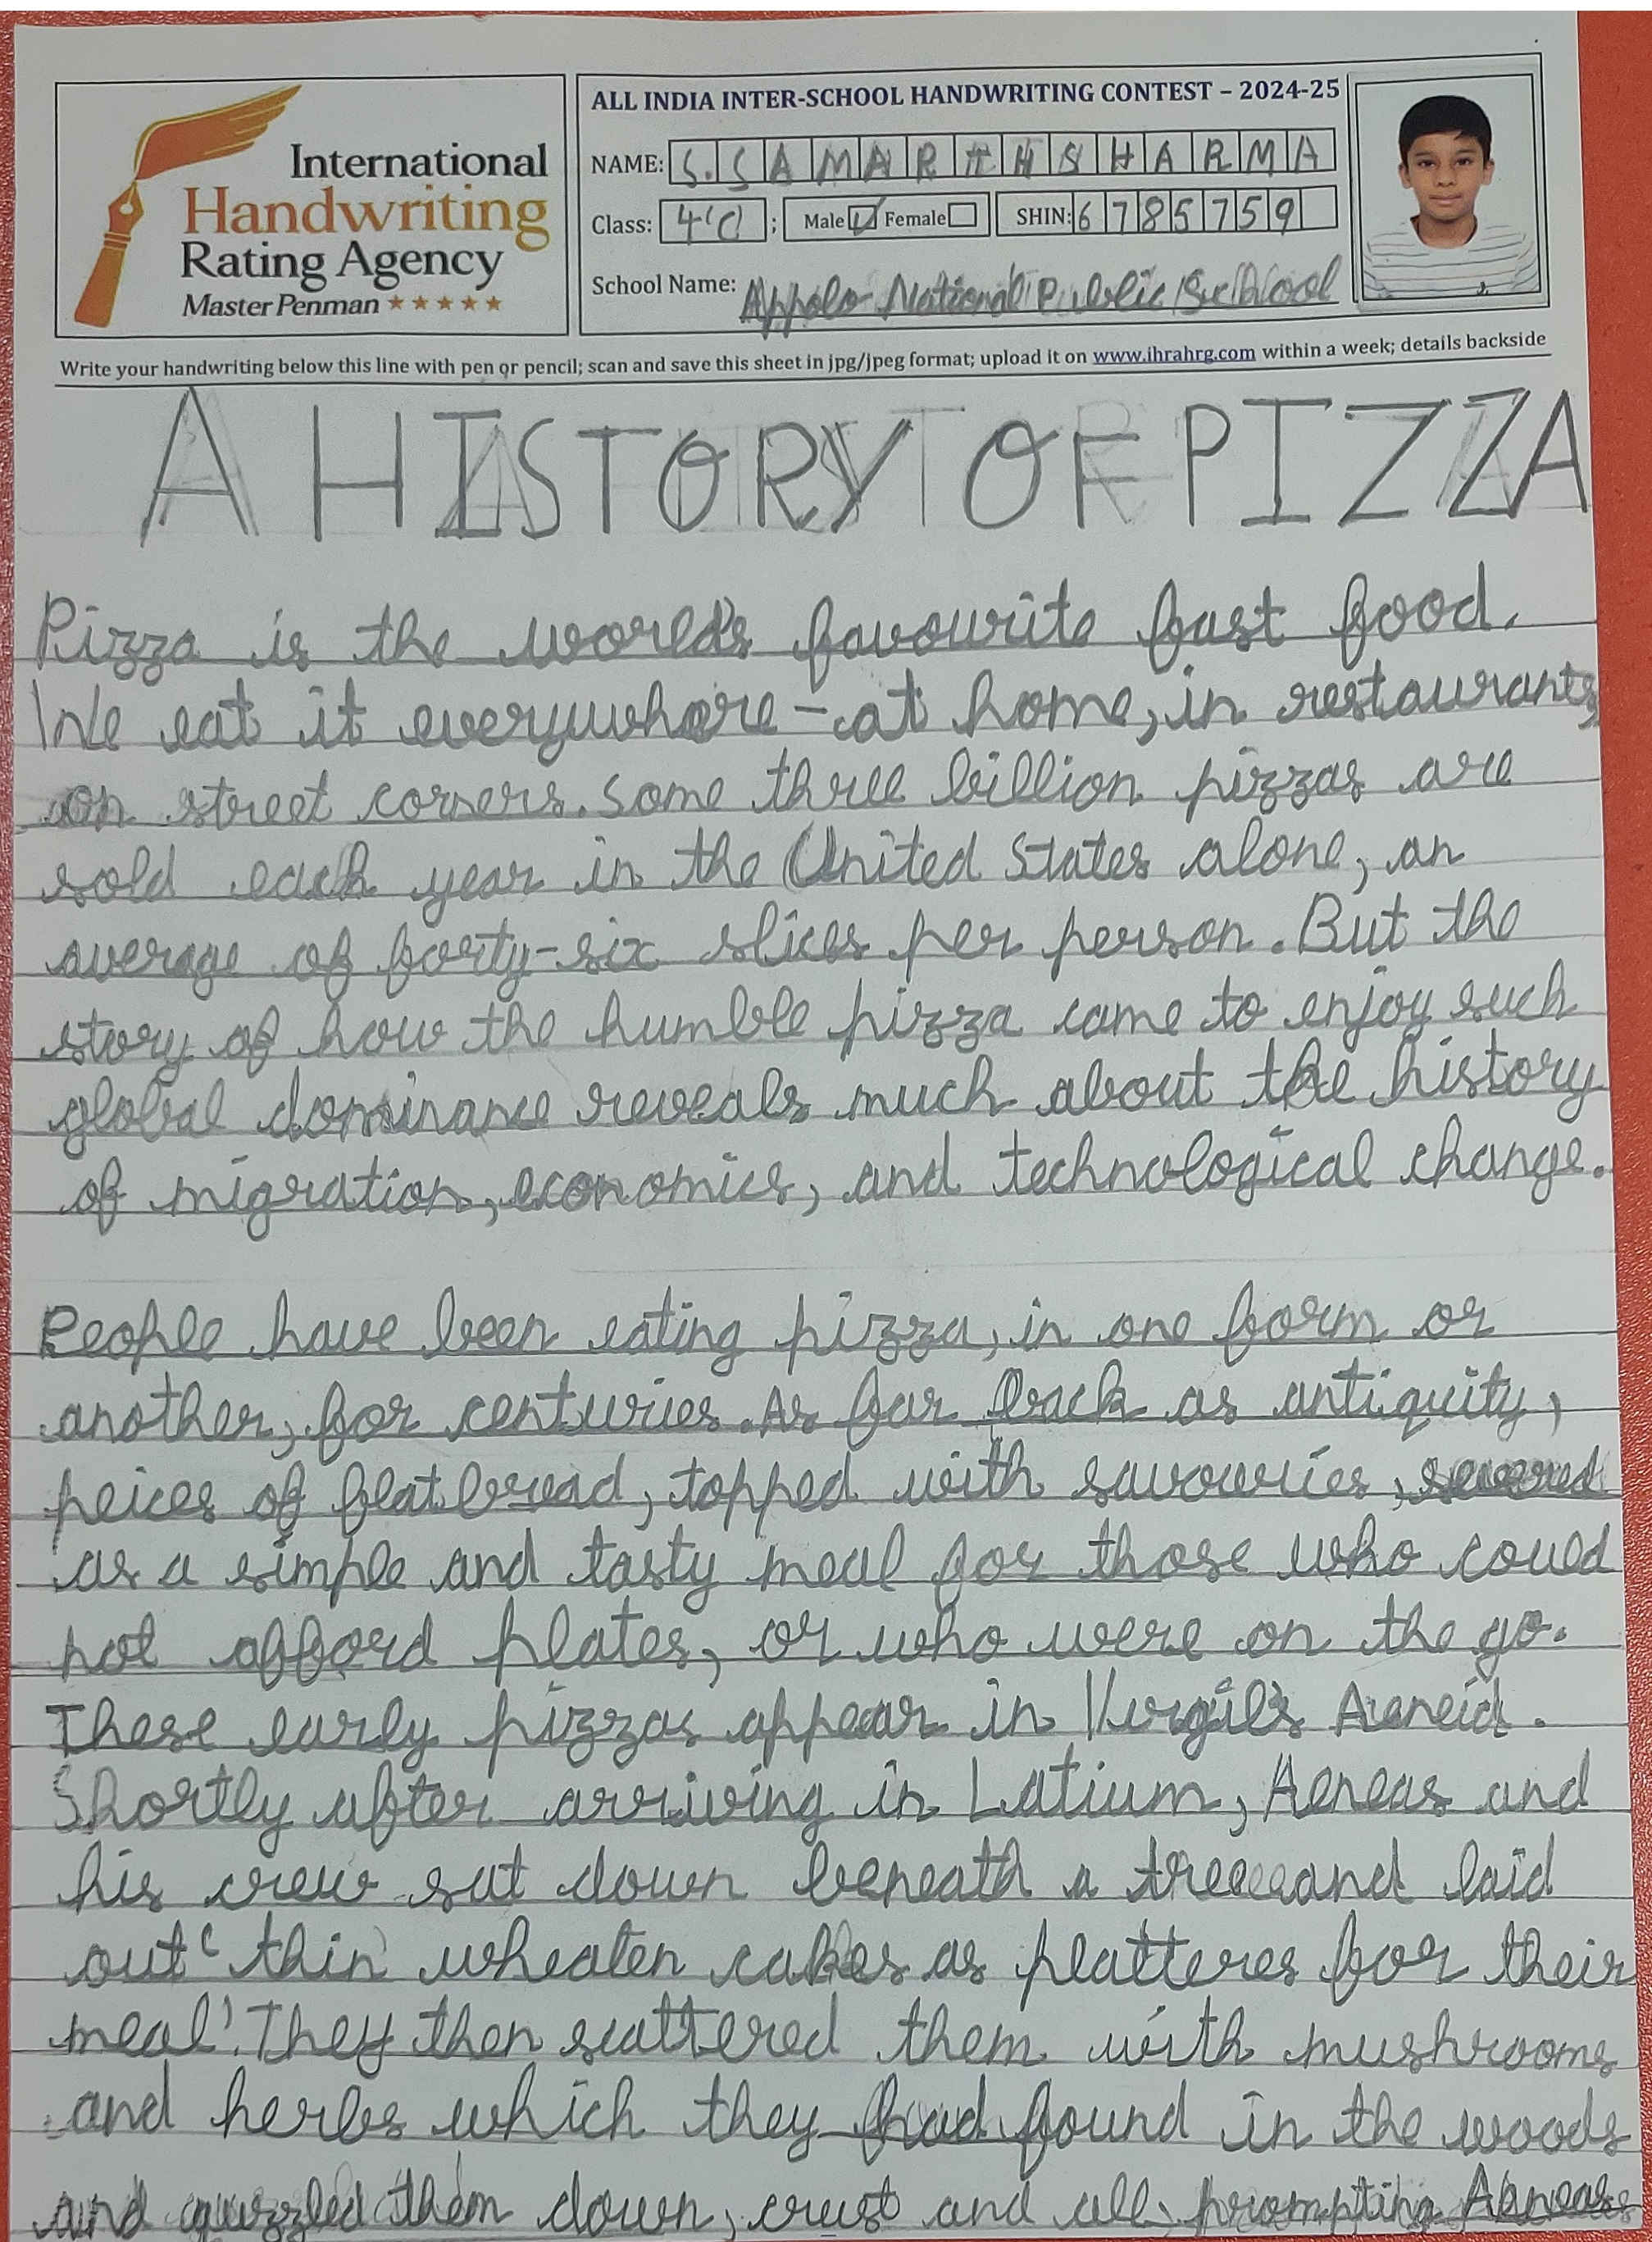 International
Handwriting
Rating Agency
Master Penman ★★★★★
ALL INDIA INTER-SCHOOL HANDWRITING CONTEST – 2024-25
NAME: S. SAMARTH SHARMA
Class: 4'C' ; Male ☑ Female ☐ SHIN: 6785759
School Name: Appolo National Public School
Write your handwriting below this line with pen or pencil; scan and save this sheet in jpg/jpeg format; upload it on www.ihrahrg.com within a week; details backside
A HISTORY OF PIZZA
Pizza is the world's favourite fast food.
We eat it everywhere – at home, in restaurants,
on street corners. Some three billion pizzas are
sold each year in the United States alone, an
average of forty-six slices per person. But the
story of how the humble pizza came to enjoy such
global dominance reveals much about the history
of migration, economics, and technological change.
People have been eating pizza, in one form or
another, for centuries. As far back as antiquity,
peices of flatbread, topped with savouries, served
as a simple and tasty meal for those who could
not afford plates, or who were on the go.
These early pizzas appear in Virgil's Aeneid.
Shortly after arriving in Latium, Aeneas and
his crew sat down beneath a tree and laid
out 'thin wheaten cakes as platteres for their
meal'. They then scattered them with mushrooms
and herbs which they had found in the woods
and guzzled them down, crust and all, prompting Aeneas